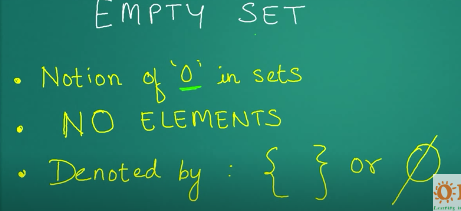 EMPTY SET
• Notion of '0' in sets
• NO ELEMENTS
• Denoted by : { } or ∅